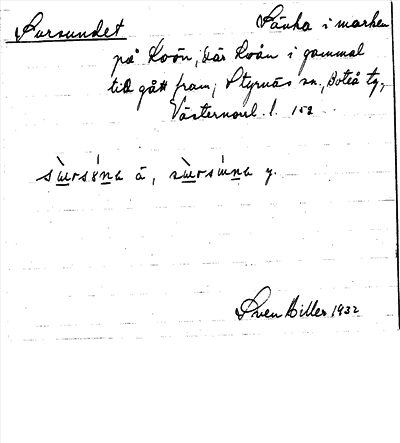 Sursundet Sänka i marken
på Loön, där Loån i gammal
tid gått fram, Styrnäs sn., Boteå tg,
Västernorrl. l. 152
ä, y.
Sven Biller 1932